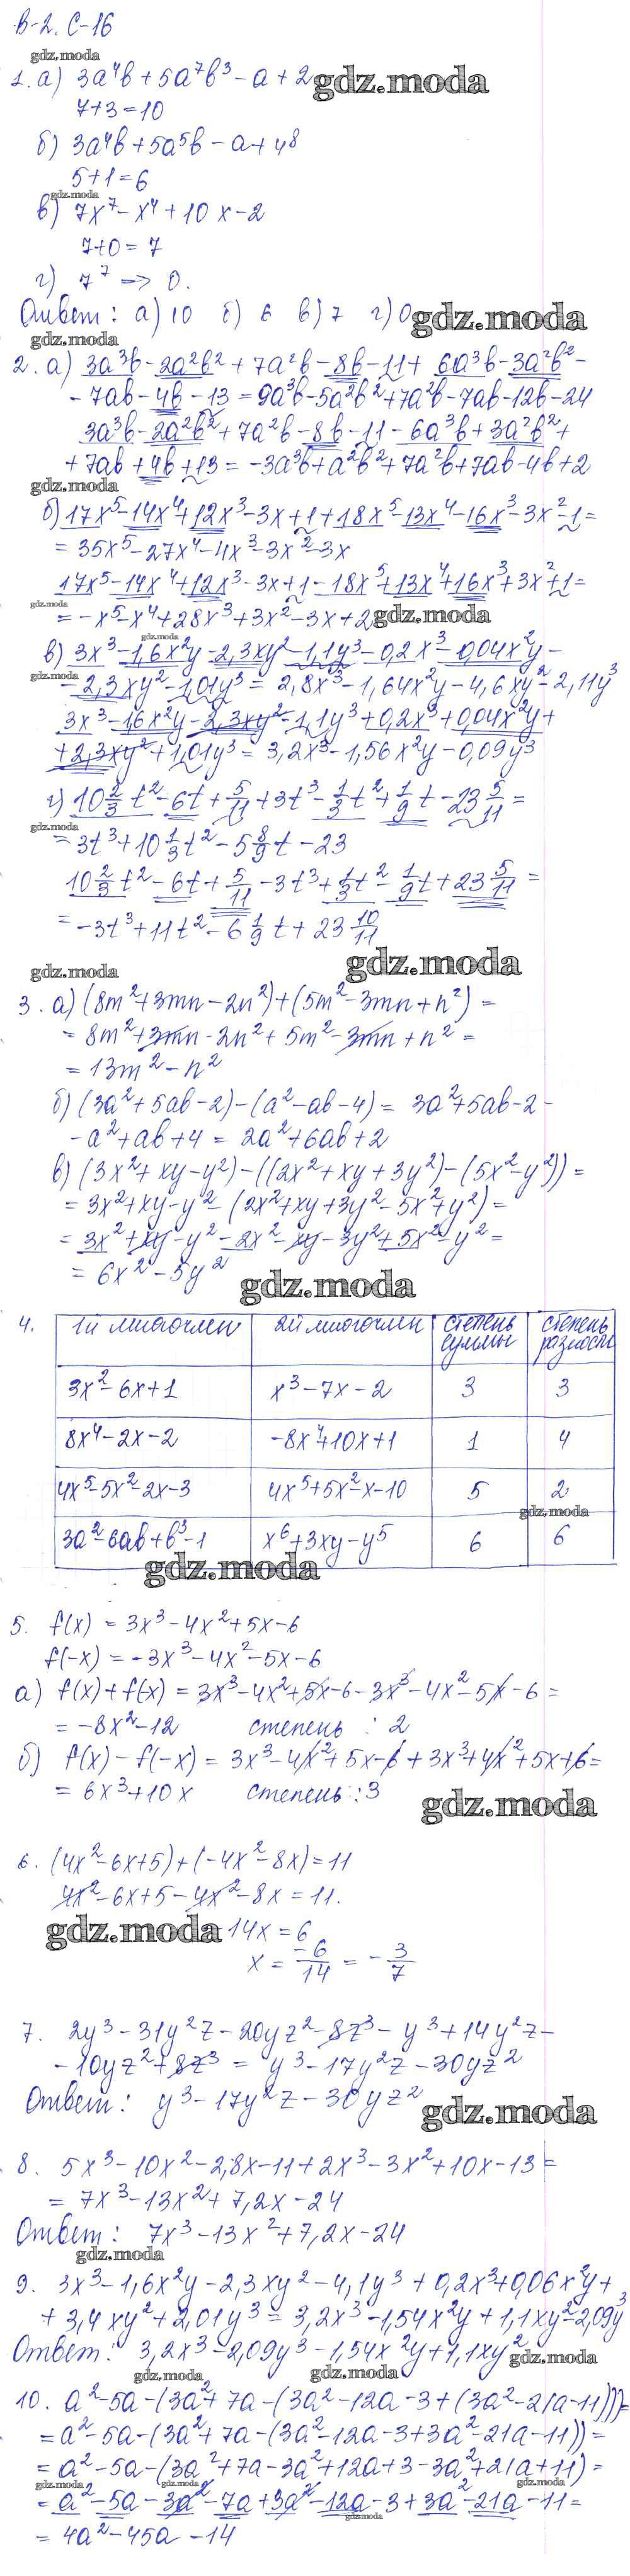 В-2. С-16
gdz.moda
1. а) 3a⁴b + 5a⁷b³ - a + 2 gdz.moda
7+3=10
б) 3a⁴b + 5a⁵b - a + 4⁸
5+1=6
gdz.moda
в) 7x⁷ - x⁴ + 10x - 2
7+0=7
г) 7⁷ => 0.
Ответ: а) 10 б) 6 в) 7 г) 0 gdz.moda
gdz.moda
2. а) 3a³b - 2a²b² + 7a²b - 8b - 11 + 6a³b - 3a²b² -
- 7ab - 4b - 13 = 9a³b - 5a²b² + 7a²b - 7ab - 12b - 24
3a³b - 2a²b² + 7a²b - 8b - 11 - 6a³b + 3a²b² +
+ 7ab + 4b + 13 = -3a³b + a²b² + 7a²b + 7ab - 4b + 2
gdz.moda
б) 17x⁵ - 14x⁴ + 12x³ - 3x + 1 + 18x⁵ - 13x⁴ - 16x³ - 3x² - 1 =
= 35x⁵ - 27x⁴ - 4x³ - 3x² - 3x
17x⁵ - 14x⁴ + 12x³ - 3x + 1 - 18x⁵ + 13x⁴ + 16x³ + 3x² + 1 =
gdz.moda
= -x⁵ - x⁴ + 28x³ + 3x² - 3x + 2 gdz.moda
gdz.moda
в) 3x³ - 1,6x²y - 2,3xy² - 1,1y³ - 0,2x³ - 0,04x²y -
gdz.moda
- 2,3xy² - 1,01y³ = 2,8x³ - 1,64x²y - 4,6xy² - 2,11y³
3x³ - 1,6x²y - 2,3xy² - 1,1y³ + 0,2x³ + 0,04x²y +
+ 2,3xy² + 1,01y³ = 3,2x³ - 1,56x²y - 0,09y³
г) 10 2/3 t² - 6t + 5/11 + 3t³ - 1/3 t² + 1/9 t - 23 5/11 =
gdz.moda
= 3t³ + 10 1/3 t² - 5 8/9 t - 23
10 2/3 t² - 6t + 5/11 - 3t³ + 1/3 t² - 1/9 t + 23 5/11 =
= -3t³ + 11t² - 6 1/9 t + 23 10/11
gdz.moda gdz.moda
3. а) (8m² + 3mn - 2n²) + (5m² - 3mn + n²) =
= 8m² + 3mn - 2n² + 5m² - 3mn + n² =
= 13m² - n²
б) (3a² + 5ab - 2) - (a² - ab - 4) = 3a² + 5ab - 2 -
- a² + ab + 4 = 2a² + 6ab + 2
в) (3x² + xy - y²) - ((2x² + xy + 3y²) - (5x² - y²)) =
= 3x² + xy - y² - (2x² + xy + 3y² - 5x² + y²) =
= 3x² + xy - y² - 2x² - xy - 3y² + 5x² - y² =
= 6x² - 5y²
gdz.moda
4. 1й многочлен 2й многочлен степень суммы степень разности
3x² - 6x + 1 x³ - 7x - 2 3 3
8x⁴ - 2x - 2 -8x⁴ + 10x + 1 1 4
4x⁵ - 5x² - 2x - 3 4x⁵ + 5x² - x - 10 5 2
gdz.moda
3a² - 6ab + b³ - 1 x⁶ + 3xy - y⁵ 6 6
gdz.moda
5. f(x) = 3x³ - 4x² + 5x - 6
f(-x) = -3x³ - 4x² - 5x - 6
а) f(x) + f(-x) = 3x³ - 4x² + 5x - 6 - 3x³ - 4x² - 5x - 6 =
= -8x² - 12 степень : 2
б) f(x) - f(-x) = 3x³ - 4x² + 5x - 6 + 3x³ + 4x² + 5x + 6 =
= 6x³ + 10x степень : 3
gdz.moda
6. (4x² - 6x + 5) + (-4x² - 8x) = 11
4x² - 6x + 5 - 4x² - 8x = 11.
gdz.moda 14x = 6
x = -6/14 = - 3/7
7. 2y³ - 31y²z - 20yz² - 8z³ - y³ + 14y²z -
- 10yz² + 8z³ = y³ - 17y²z - 30yz²
Ответ: y³ - 17y²z - 30yz²
gdz.moda
8. 5x³ - 10x² - 2,8x - 11 + 2x³ - 3x² + 10x - 13 =
= 7x³ - 13x² + 7,2x - 24
Ответ: 7x³ - 13x² + 7,2x - 24
gdz.moda
9. 3x³ - 1,6x²y - 2,3xy² - 4,1y³ + 0,2x³ + 0,06x²y +
+ 3,4xy² + 2,01y³ = 3,2x³ - 1,54x²y + 1,1xy² - 2,09y³
Ответ: 3,2x³ - 2,09y³ - 1,54x²y + 1,1xy² gdz.moda
gdz.moda gdz.moda
10. a² - 5a - (3a² + 7a - (3a² - 12a - 3 + (3a² - 21a - 11))) =
= a² - 5a - (3a² + 7a - (3a² - 12a - 3 + 3a² - 21a - 11)) =
= a² - 5a - (3a² + 7a - 3a² + 12a + 3 - 3a² + 21a + 11) =
gdz.moda gdz.moda gdz.moda
= a² - 5a - 3a² - 7a + 3a² - 12a - 3 + 3a² - 21a - 11 =
gdz.moda
= 4a² - 45a - 14